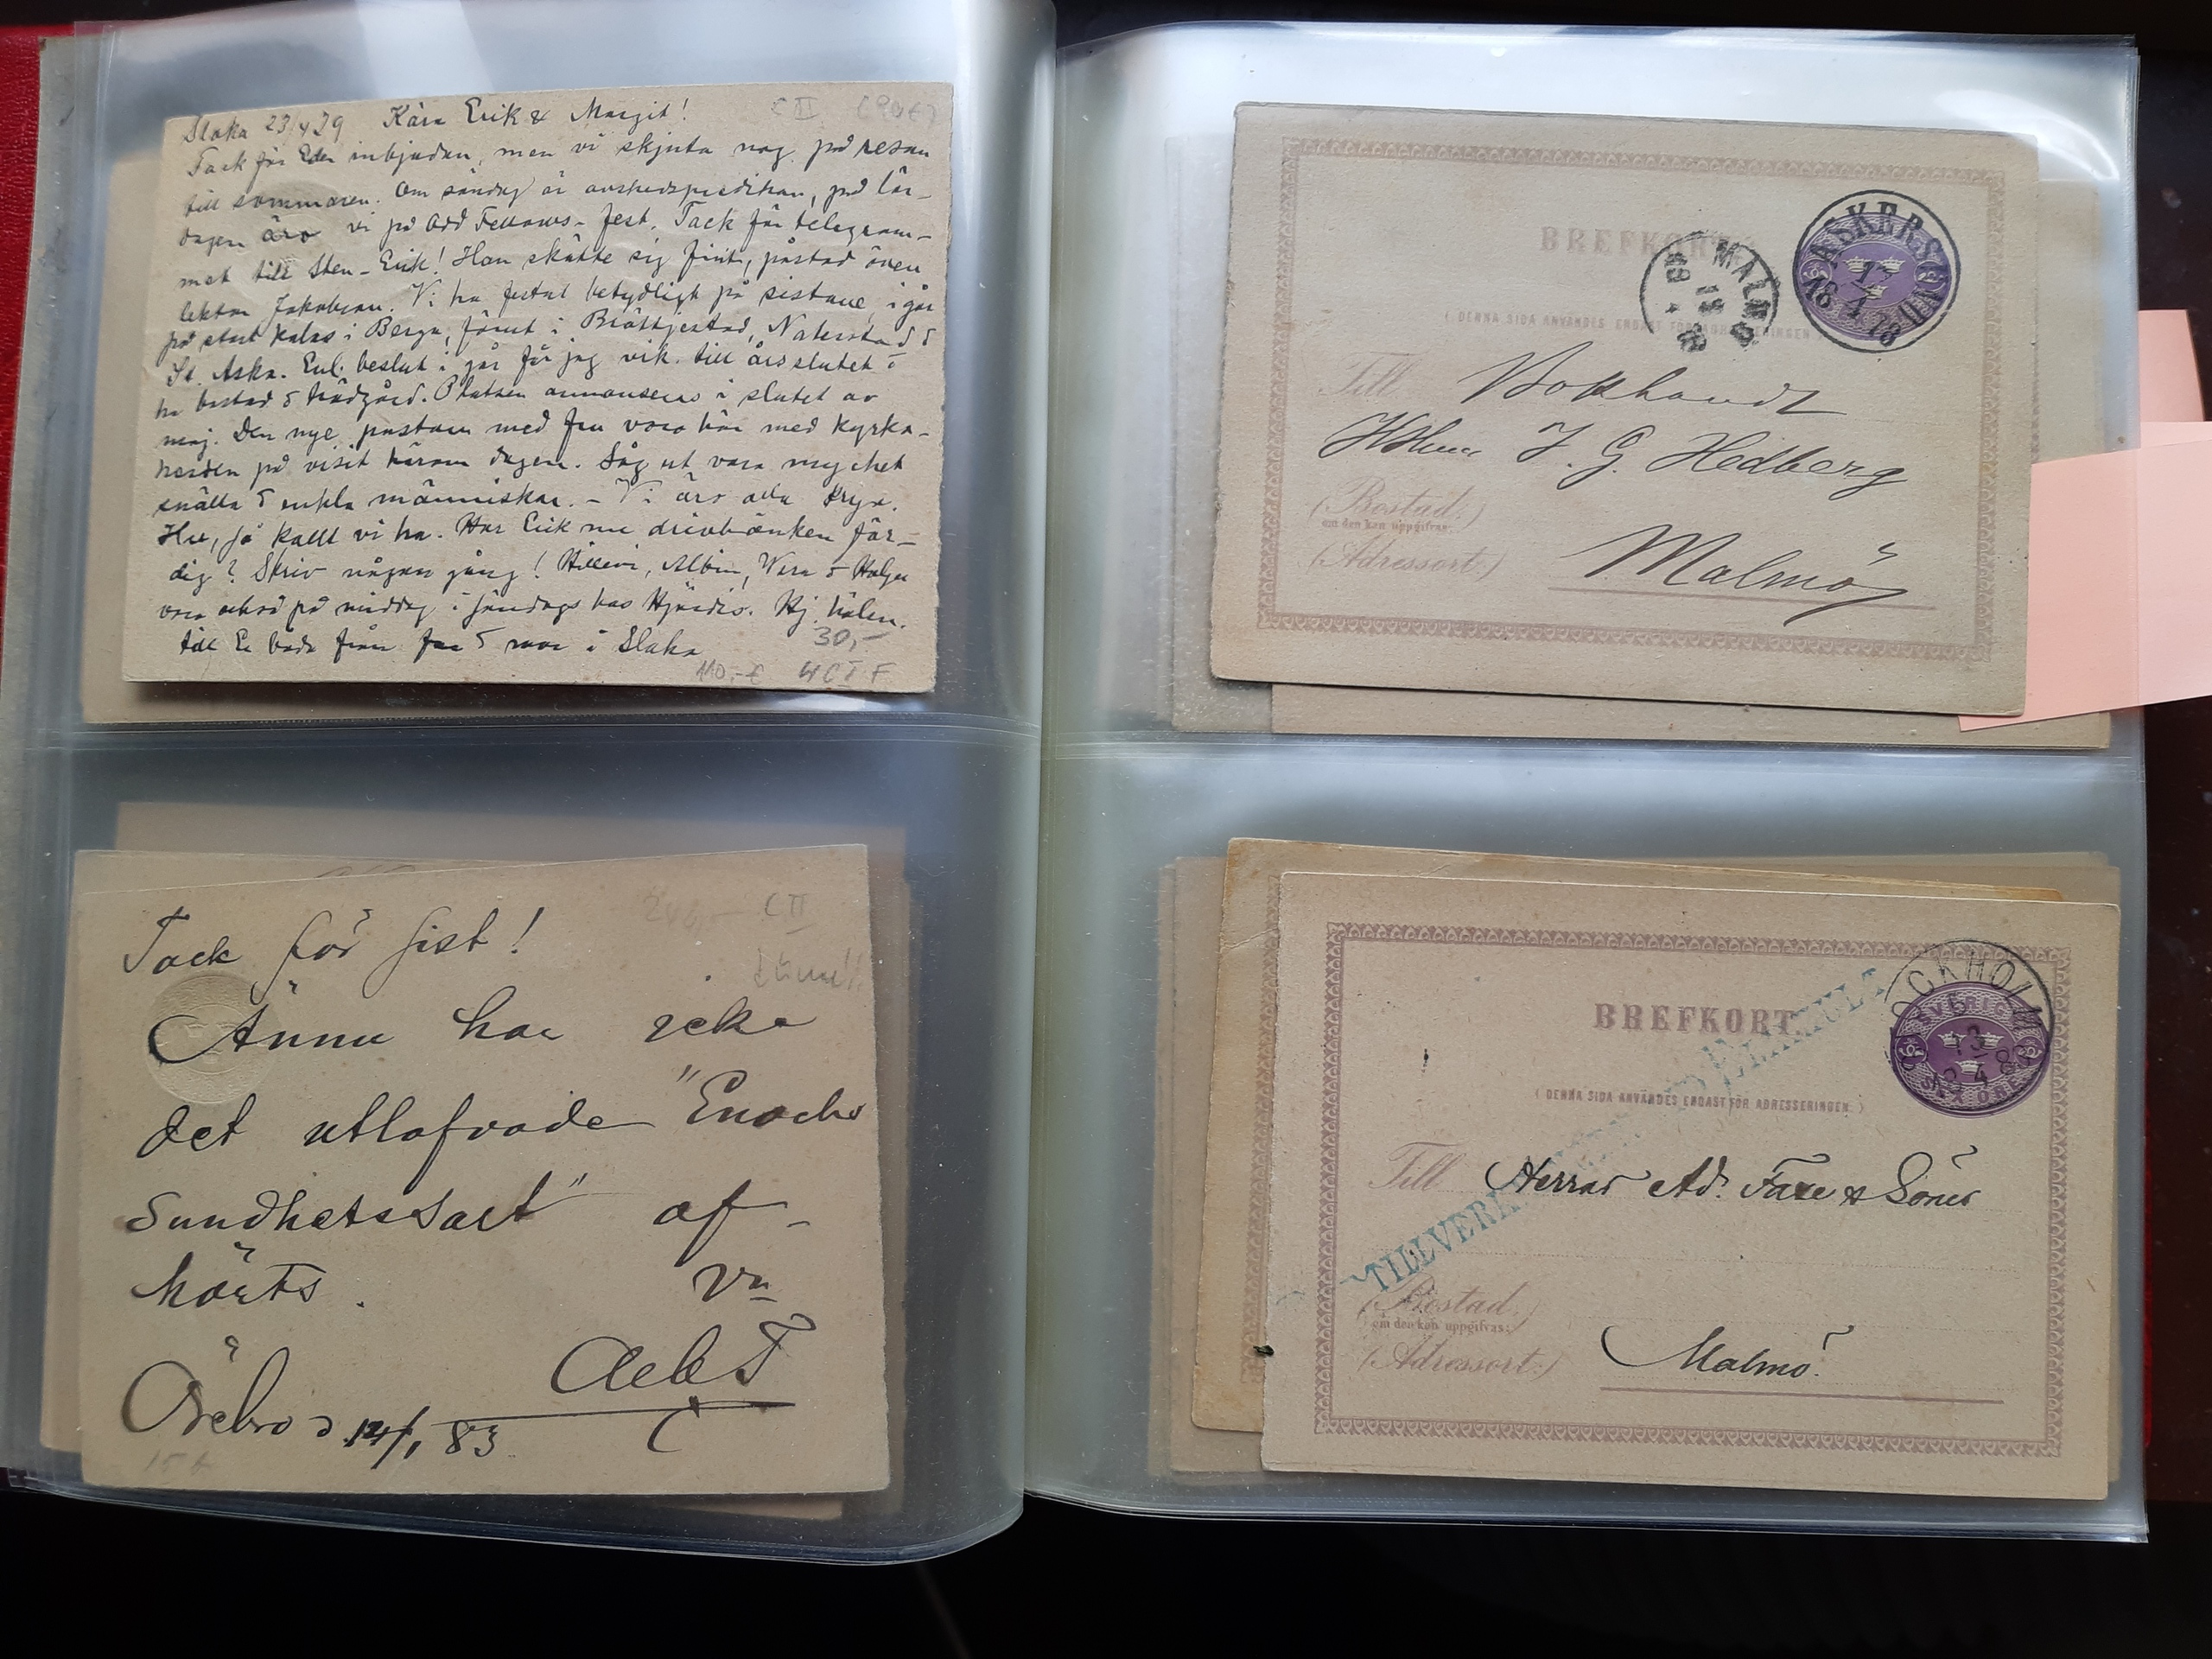 Slaka 23/4 29 Kära Erik & Margit!
CII
Tack för Eder inbjudan, men vi skjuta nog på resan
till sommaren. Om söndag är avskedspredikan, på lör-
dagen äro vi på Odd Fellows-fest. Tack för telegram-
met till Sten-Erik! Han skötte sig fint, påstod även
lektor Jakobson. Vi ha festat betydligt på sistone, i går
på stort kalas i Berga, förut i
St. Aska. Enl. beslut i går får jag vik. till årsslutet o
ha bostad o trädgård. Platsen annonseras i slutet av
maj. Den nye pastorn med fru voro här med kyrko-
herden på visit häromdagen. Såg ut vara mycket
snälla o enkla människor. - Vi äro alla krya.
Hu, så kallt vi ha. Har Erik nu drivbänken fär-
dig? Skriv någon gång! Albin, Wera o Holger
voro också på middag i söndags hos Hj. häln.
till Er båda från far o mor i Slaka
30,-
110,-€
Tack för sist!
CII
Ännu har icke
det utlofvade "Enochs
Sundhetssalt" af-
hörts. Vn
Örebro d. 12/1 83
15 b
BREFKORT
ASKERSUND
17
4
18 78
MALMÖ
(DENNA SIDA ANVÄNDES ENDAST FÖR ADRESSERINGEN
Till Bokhandl
Herr J. G. Hedberg
(Bostad:)
om den kan uppgifvas:
(Adressort:) Malmö
BREFKORT
STOCKHOLM
SVERIGE
SEX ÖRE
(DENNA SIDA ANVÄNDES ENDAST FÖR ADRESSERINGEN.)
Till Herrar Ad. Faxe & Söner
TILLVERK
(Bostad:)
om den kan uppgifvas:
(Adressort:) Malmö.